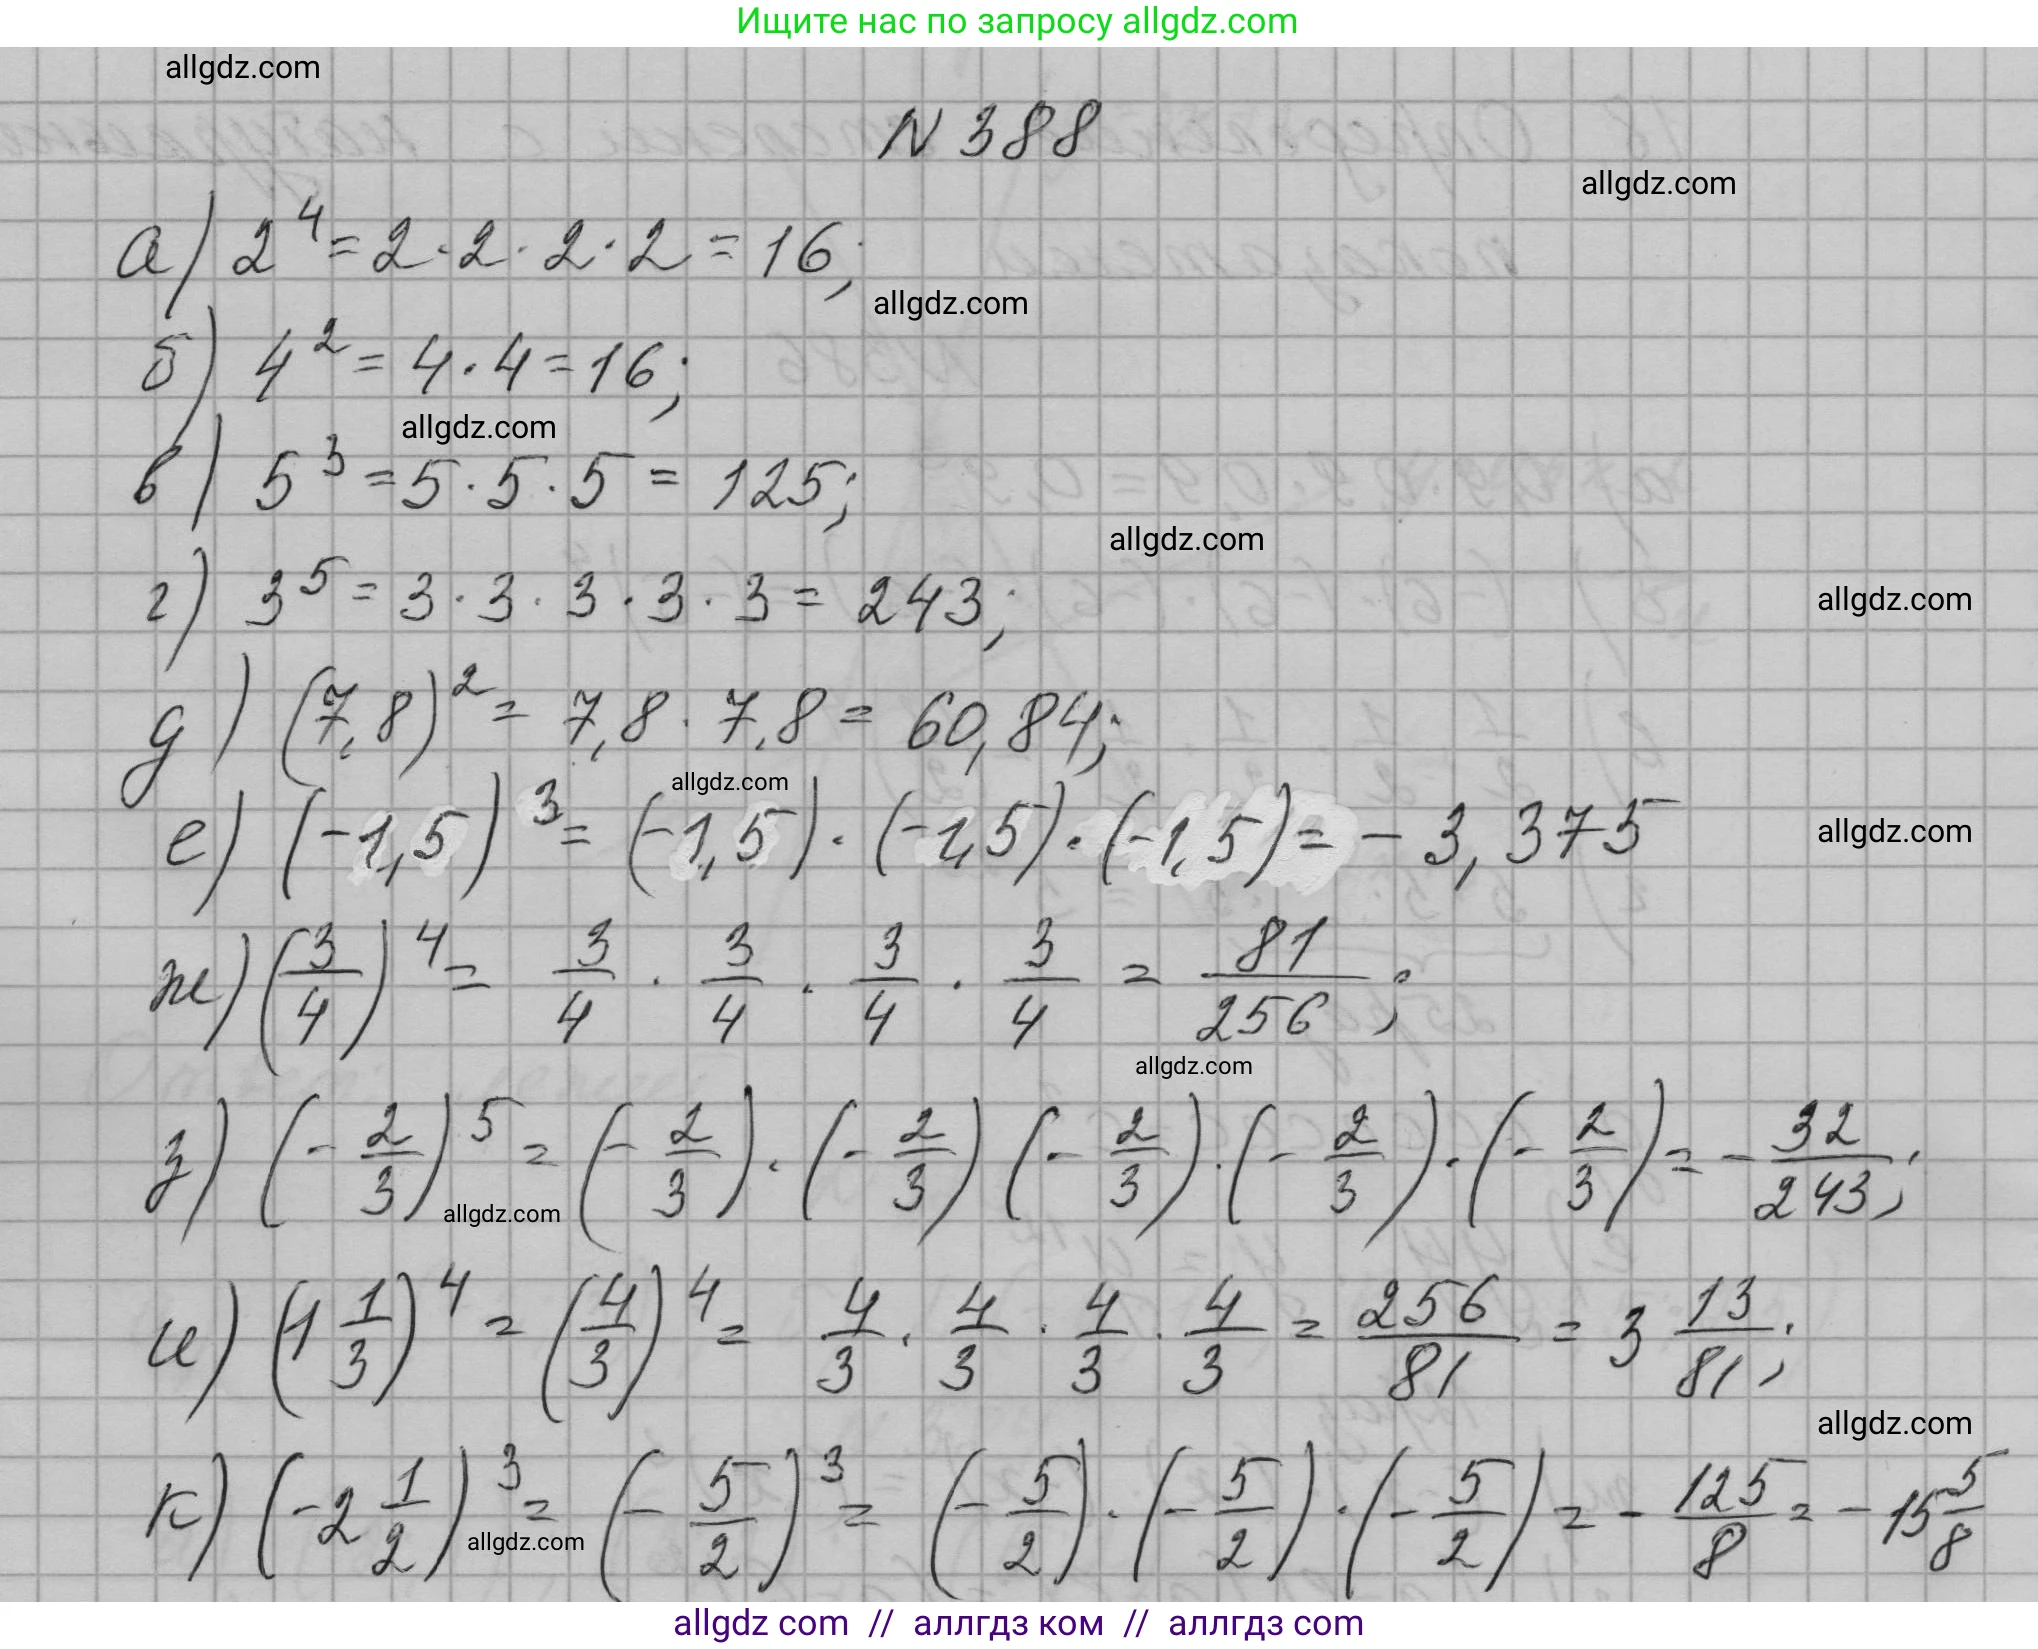 Ищите нас по запросу allgdz.com
allgdz.com
N 388
allgdz.com
а) 2⁴ = 2 · 2 · 2 · 2 = 16;
allgdz.com
б) 4² = 4 · 4 = 16;
allgdz.com
в) 5³ = 5 · 5 · 5 = 125;
allgdz.com
г) 3⁵ = 3 · 3 · 3 · 3 · 3 = 243;
allgdz.com
д) (7,8)² = 7,8 · 7,8 = 60,84;
allgdz.com
е) (-1,5)³ = (-1,5) · (-1,5) · (-1,5) = - 3,375
allgdz.com
ж) (3/4)⁴ = 3/4 · 3/4 · 3/4 · 3/4 = 81/256;
allgdz.com
з) (-2/3)⁵ = (-2/3) · (-2/3) (-2/3) · (-2/3) · (-2/3) = -32/243;
allgdz.com
и) (1 1/3)⁴ = (4/3)⁴ = 4/3 · 4/3 · 4/3 · 4/3 = 256/81 = 3 13/81;
allgdz.com
к) (-2 1/2)³ = (-5/2)³ = (-5/2) · (-5/2) · (-5/2) = -125/8 = -15 5/8
allgdz.com
allgdz com // аллгдз ком // аллгдз com